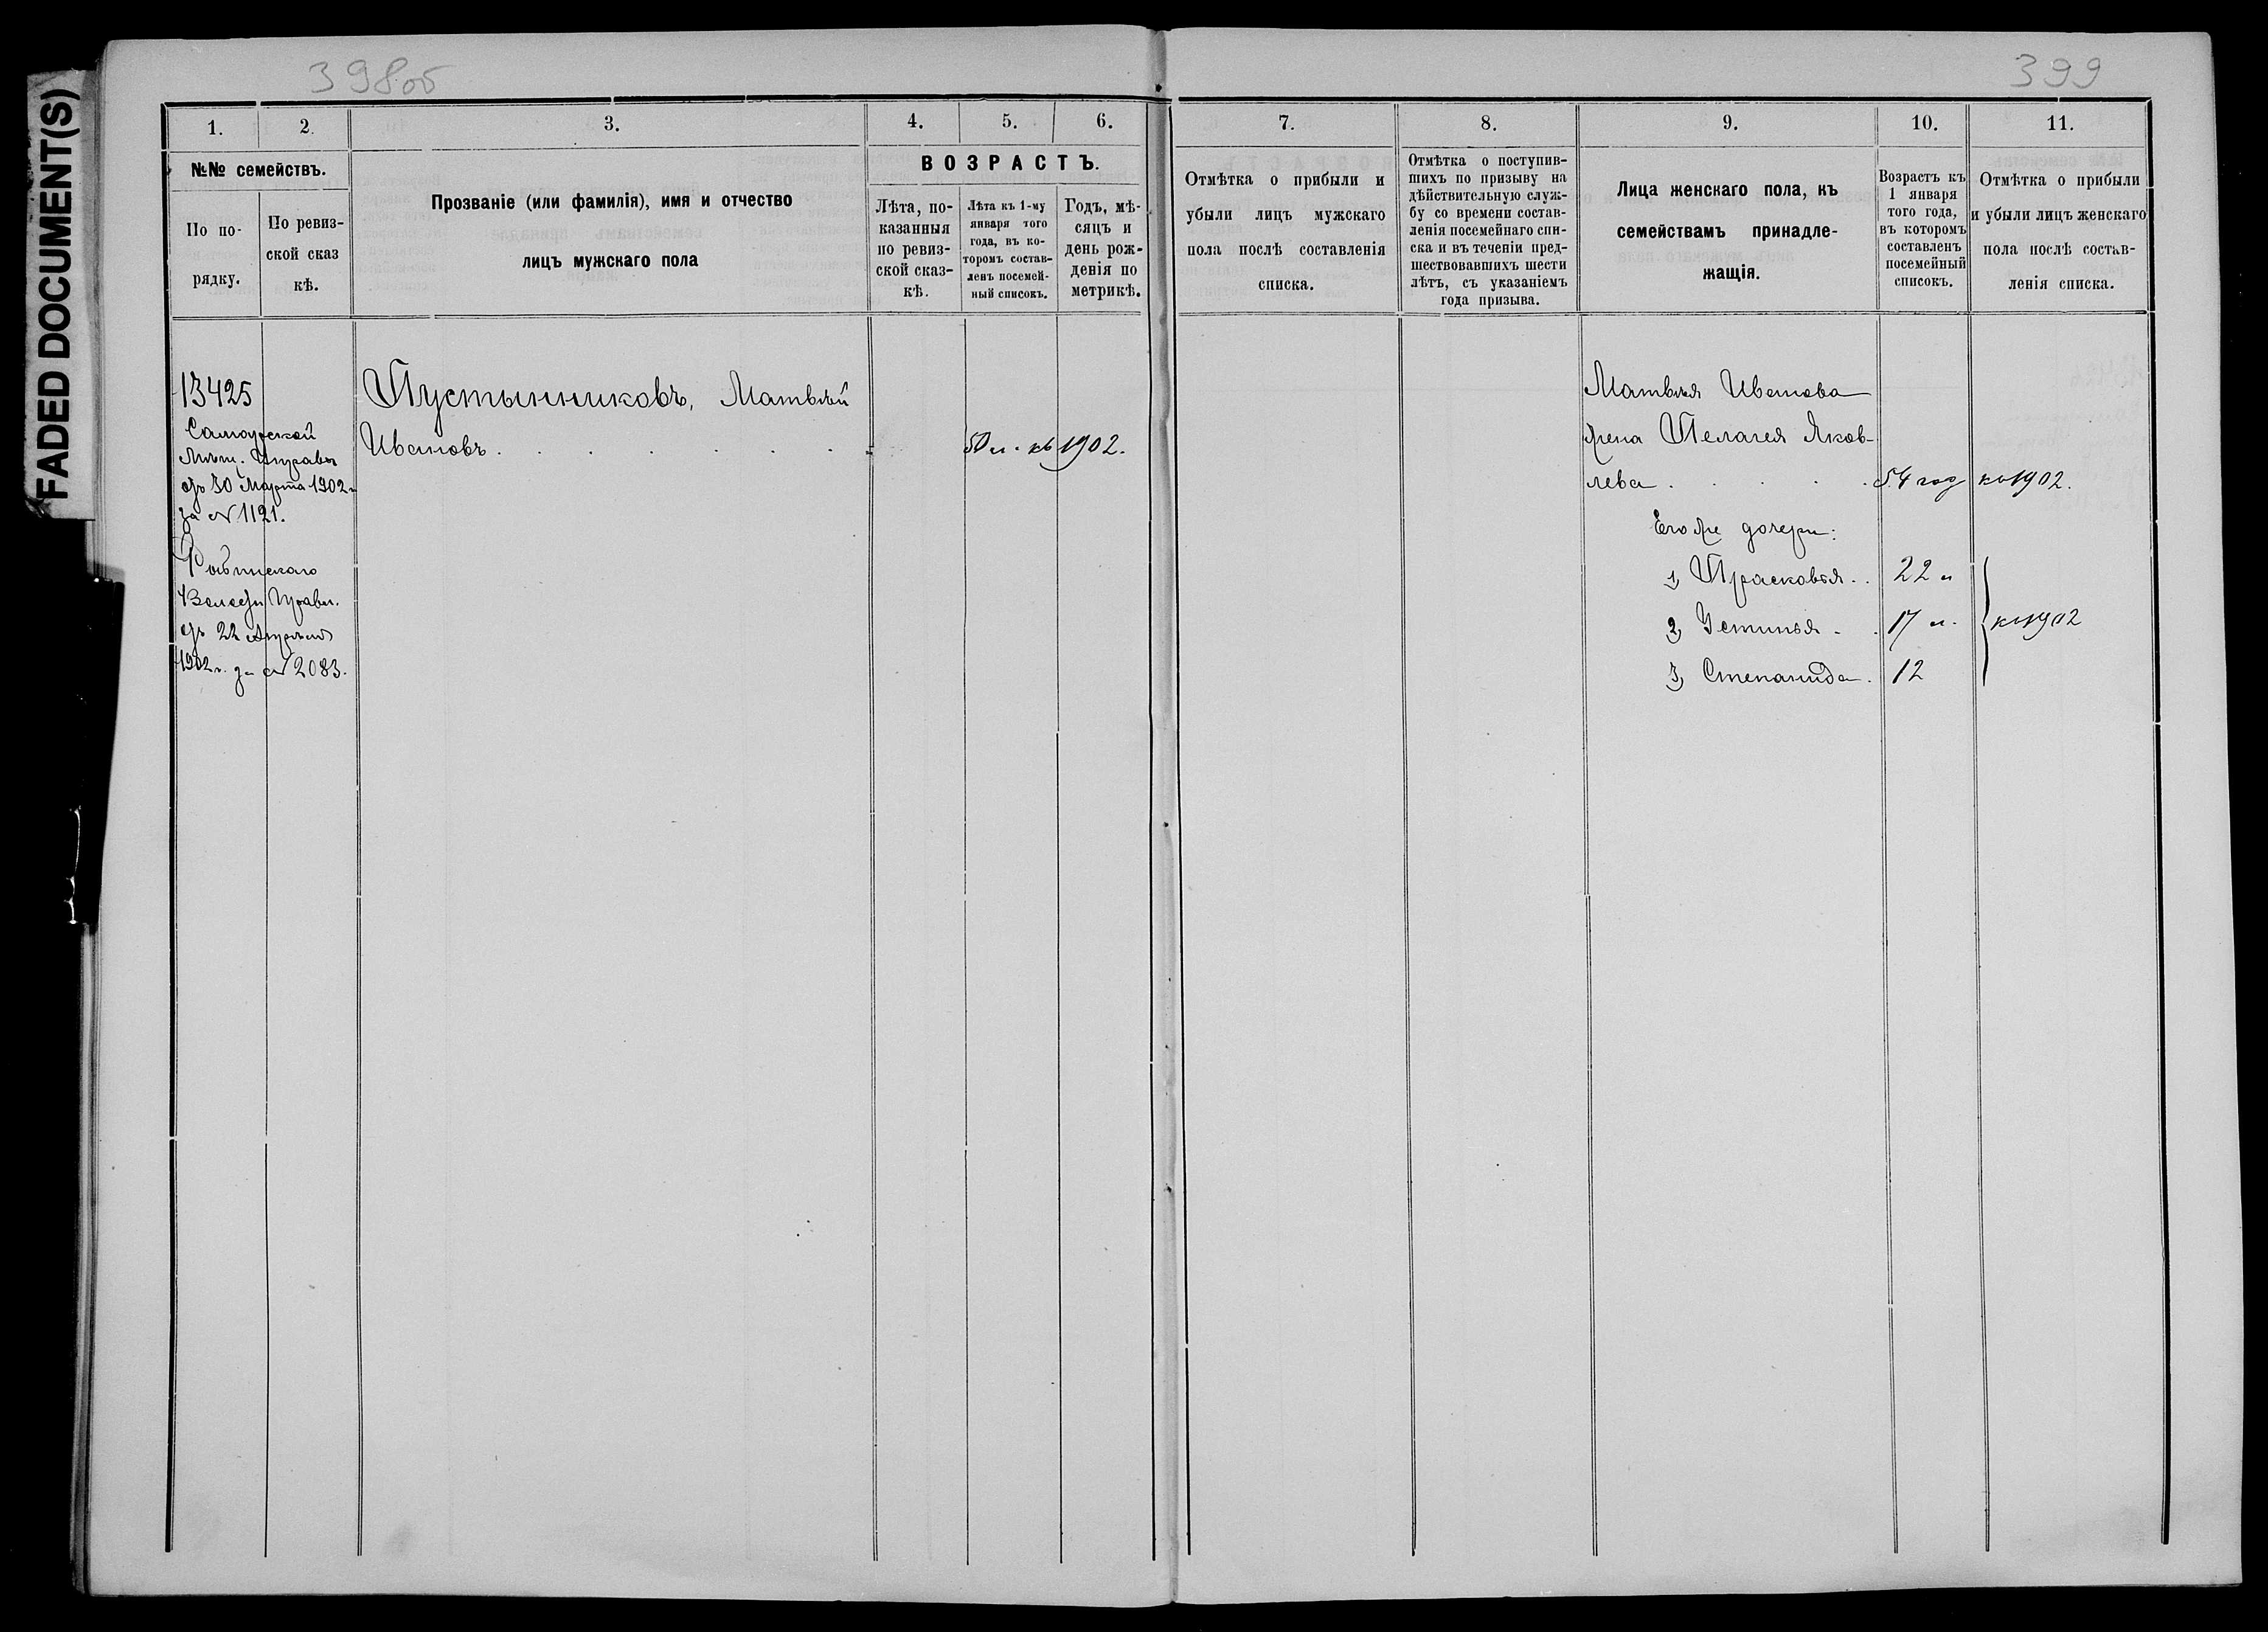 FADED DOCUMENT(S)
398 об
399
1. 2. 3. 4. 5. 6.
№№ семействъ.
По по-
рядку.
По ревиз-
ской сказ
кѣ.
Прозваніе (или фамилія), имя и отчество
лицъ мужскаго пола
ВОЗРАСТЪ.
Лѣта, по-
казанныя
по ревиз-
ской сказ-
кѣ.
Лѣта къ 1-му
января того
года, въ ко-
торомъ состав-
ленъ посемей-
ный списокъ.
Годъ, мѣ-
сяцъ и
день рож-
денія по
метрикѣ.
7. 8. 9. 10. 11.
Отмѣтка о прибыли и
убыли лицъ мужскаго
пола послѣ составленія
списка.
Отмѣтка о поступив-
шихъ по призыву на
дѣйствительную служ-
бу со времени состав-
ленія посемейнаго спи-
ска и въ теченіи пред-
шествовавшихъ шести
лѣтъ, съ указаніемъ
года призыва.
Лица женскаго пола, къ
семействамъ принадле-
жащія.
Возрастъ къ
1 января
того года,
въ которомъ
составленъ
посемейный
списокъ.
Отмѣтка о прибыли
и убыли лицъ женскаго
пола послѣ состав-
ленія списка.
13425
Самарской
Мѣщ. Управы
отъ 30 Марта 1902 г.
за № 1121.
Волост Правл.
отъ 22 Апрѣля
1902 г. за № 2083.
Пустынниковъ, Матвѣй
Ивановъ.
50 л. къ 1902.
Матвѣя Иванова
жена Пелагея Яков-
лева. 54 год къ 1902.
Его же дочери:
1, Прасковья. 22 л
2, Устинья. 17 л. къ 1902
3, Степанида. 12